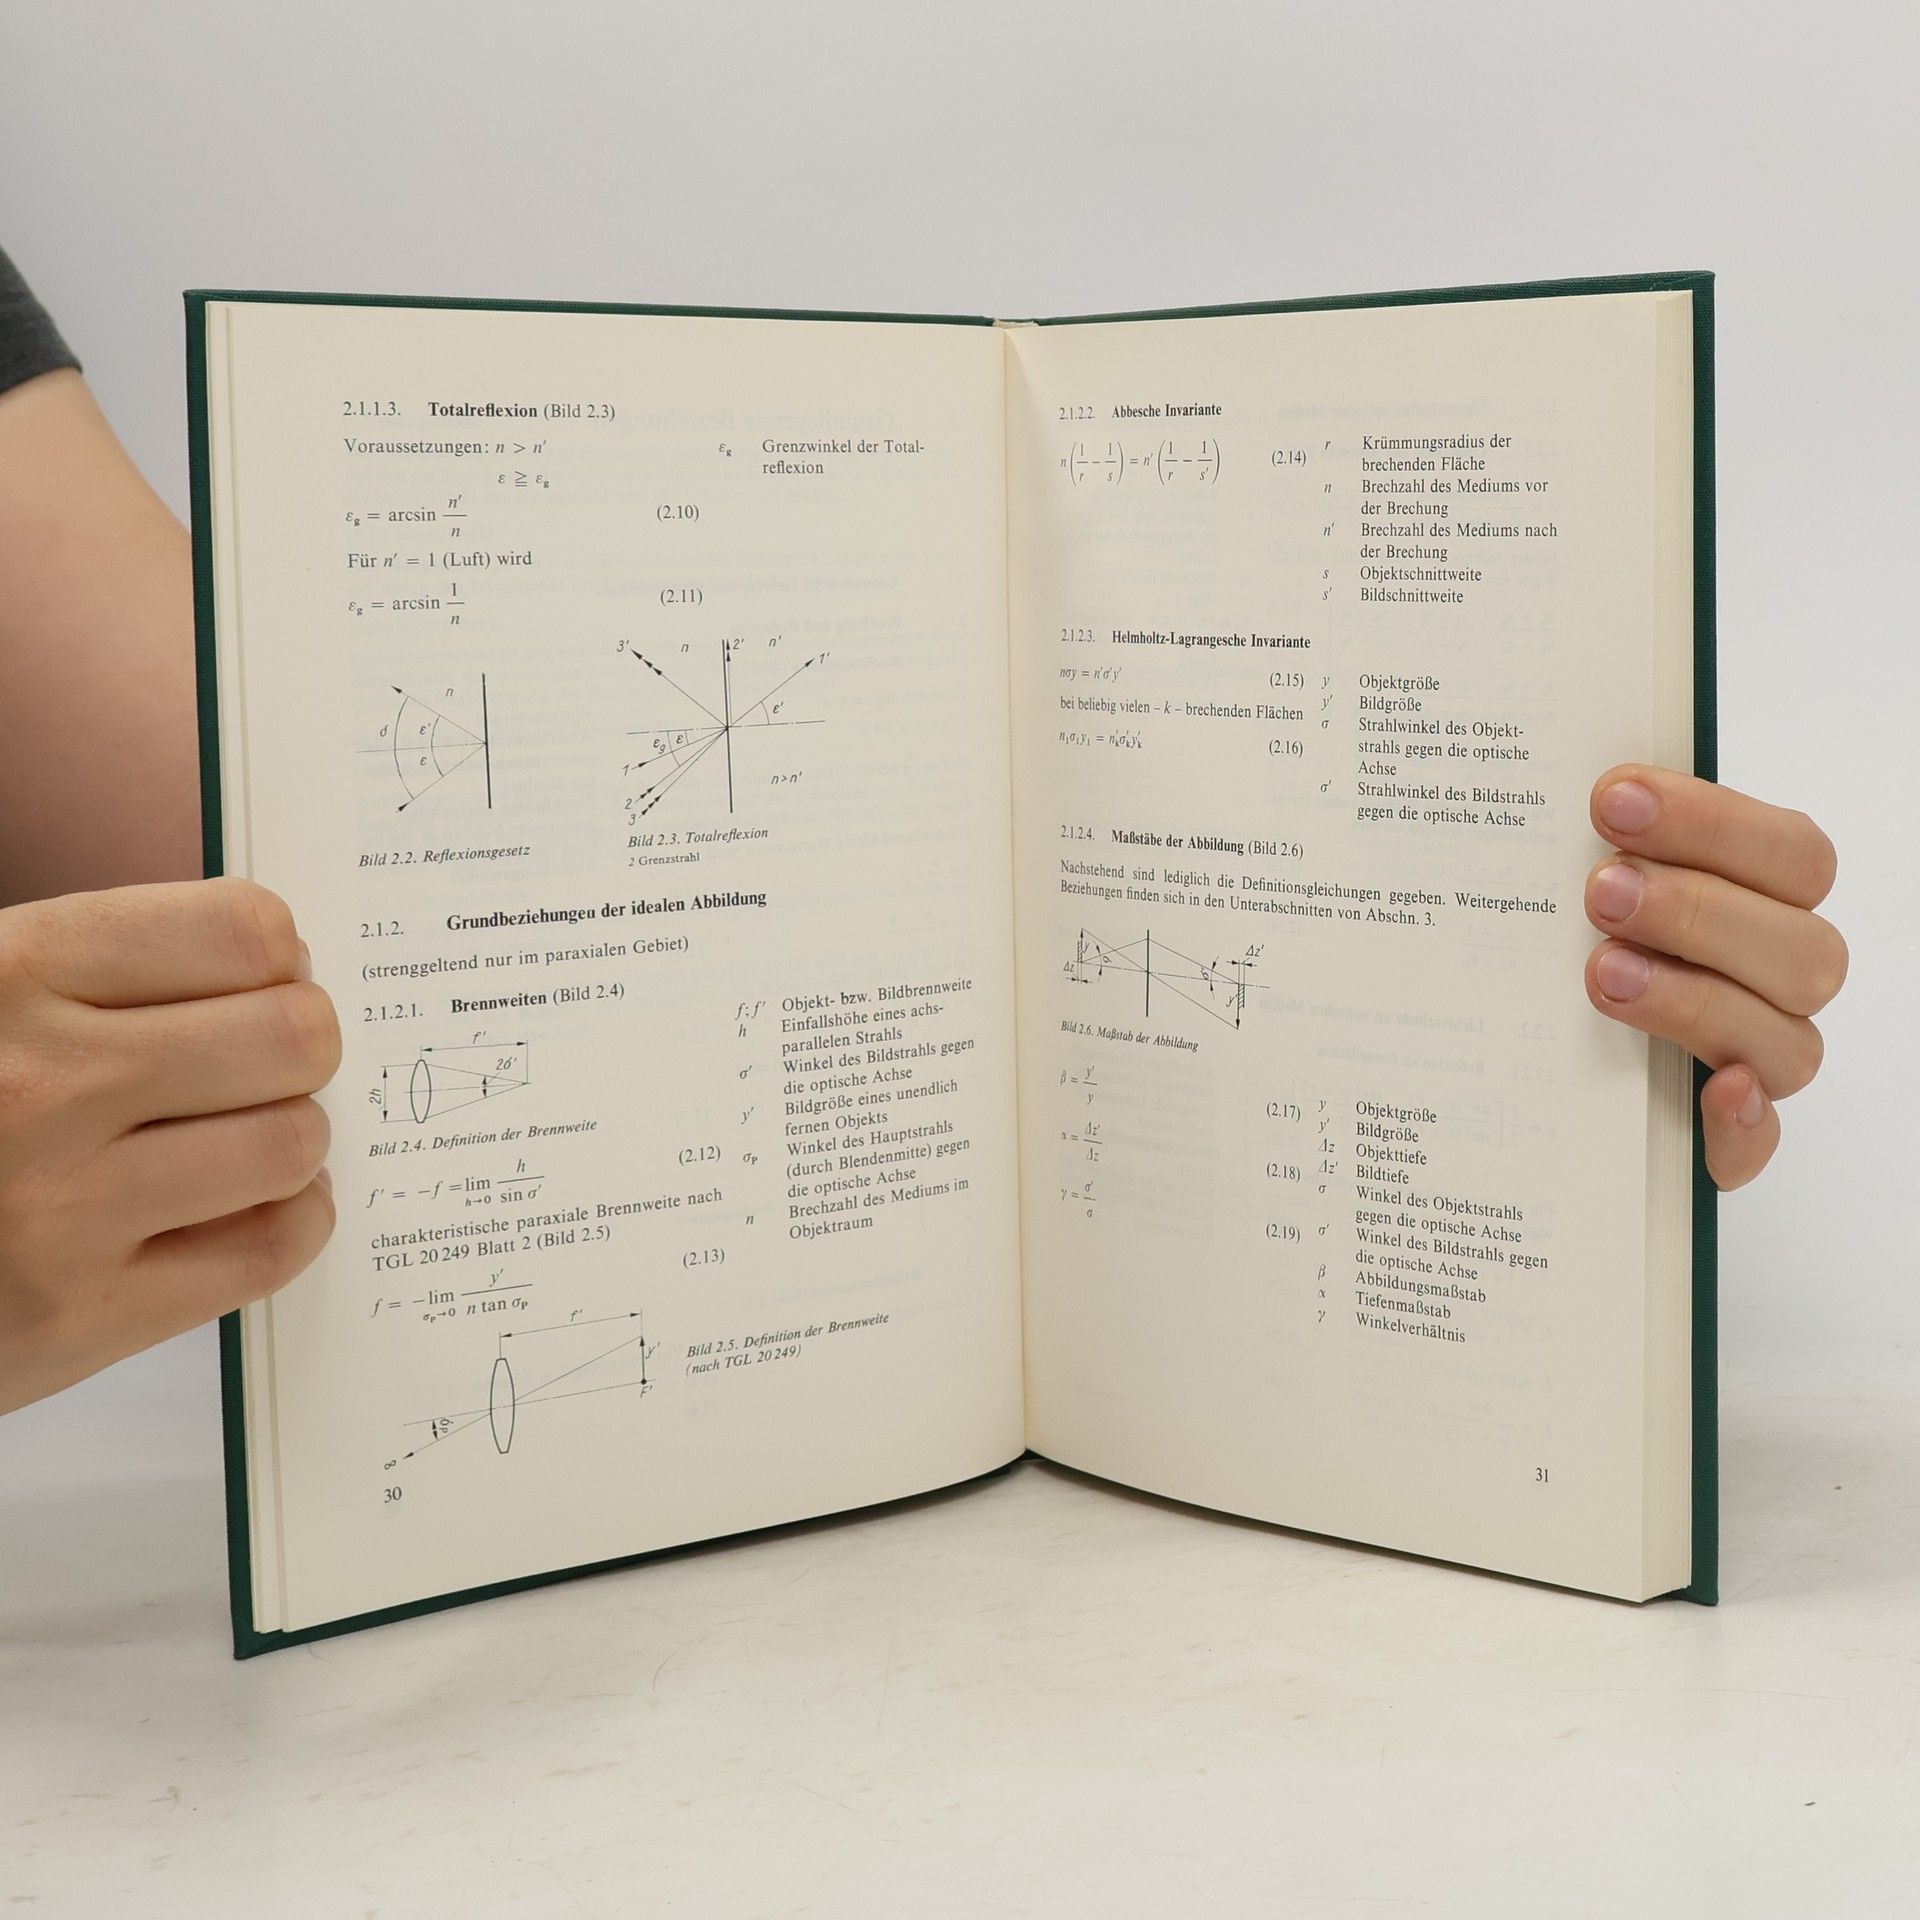 2.1.1.3. Totalreflexion (Bild 2.3)
Voraussetzungen: n > n′
ε ≧ ε_g
ε_g Grenzwinkel der Total-
reflexion
ε_g = arcsin n′/n (2.10)
Für n′ = 1 (Luft) wird
ε_g = arcsin 1/n (2.11)
n
d
ε′
ε
Bild 2.2. Reflexionsgesetz
3′ n 2′ n′ 1′
ε′
ε_g ε
1
2
3
n>n′
Bild 2.3. Totalreflexion
2 Grenzstrahl
2.1.2. Grundbeziehungen der idealen Abbildung
(strenggeltend nur im paraxialen Gebiet)
2.1.2.1. Brennweiten (Bild 2.4)
f′
2h
2σ′
Bild 2.4. Definition der Brennweite
f′ = −f = lim h→0 h/sin σ′ (2.12)
charakteristische paraxiale Brennweite nach
TGL 20 249 Blatt 2 (Bild 2.5)
(2.13)
f = −lim σ_P→0 y′/n tan σ_P
f; f′ Objekt- bzw. Bildbrennweite
h Einfallshöhe eines achs-
parallelen Strahls
σ′ Winkel des Bildstrahls gegen
die optische Achse
y′ Bildgröße eines unendlich
fernen Objekts
σ_P Winkel des Hauptstrahls
(durch Blendenmitte) gegen
die optische Achse
n Brechzahl des Mediums im
Objektraum
f′
y′
F′
σ_P
∞
Bild 2.5. Definition der Brennweite
(nach TGL 20 249)
30
2.1.2.2. Abbesche Invariante
n(1/r − 1/s) = n′(1/r − 1/s′) (2.14)
r Krümmungsradius der
brechenden Fläche
n Brechzahl des Mediums vor
der Brechung
n′ Brechzahl des Mediums nach
der Brechung
s Objektschnittweite
s′ Bildschnittweite
2.1.2.3. Helmholtz-Lagrangesche Invariante
nσy = n′σ′y′ (2.15)
bei beliebig vielen – k – brechenden Flächen
n₁σ₁y₁ = n′_kσ′_ky′_k (2.16)
y Objektgröße
y′ Bildgröße
σ Strahlwinkel des Objekt-
strahls gegen die optische
Achse
σ′ Strahlwinkel des Bildstrahls
gegen die optische Achse
2.1.2.4. Maßstäbe der Abbildung (Bild 2.6)
Nachstehend sind lediglich die Definitionsgleichungen gegeben. Weitergehende
Beziehungen finden sich in den Unterabschnitten von Abschn. 3.
y
σ
Δz
σ′
Δz′
y′
Bild 2.6. Maßstab der Abbildung
β = y′/y (2.17)
α = Δz′/Δz (2.18)
γ = σ′/σ (2.19)
y Objektgröße
y′ Bildgröße
Δz Objekttiefe
Δz′ Bildtiefe
σ Winkel des Objektstrahls
gegen die optische Achse
σ′ Winkel des Bildstrahls gegen
die optische Achse
β Abbildungsmaßstab
α Tiefenmaßstab
γ Winkelverhältnis
31